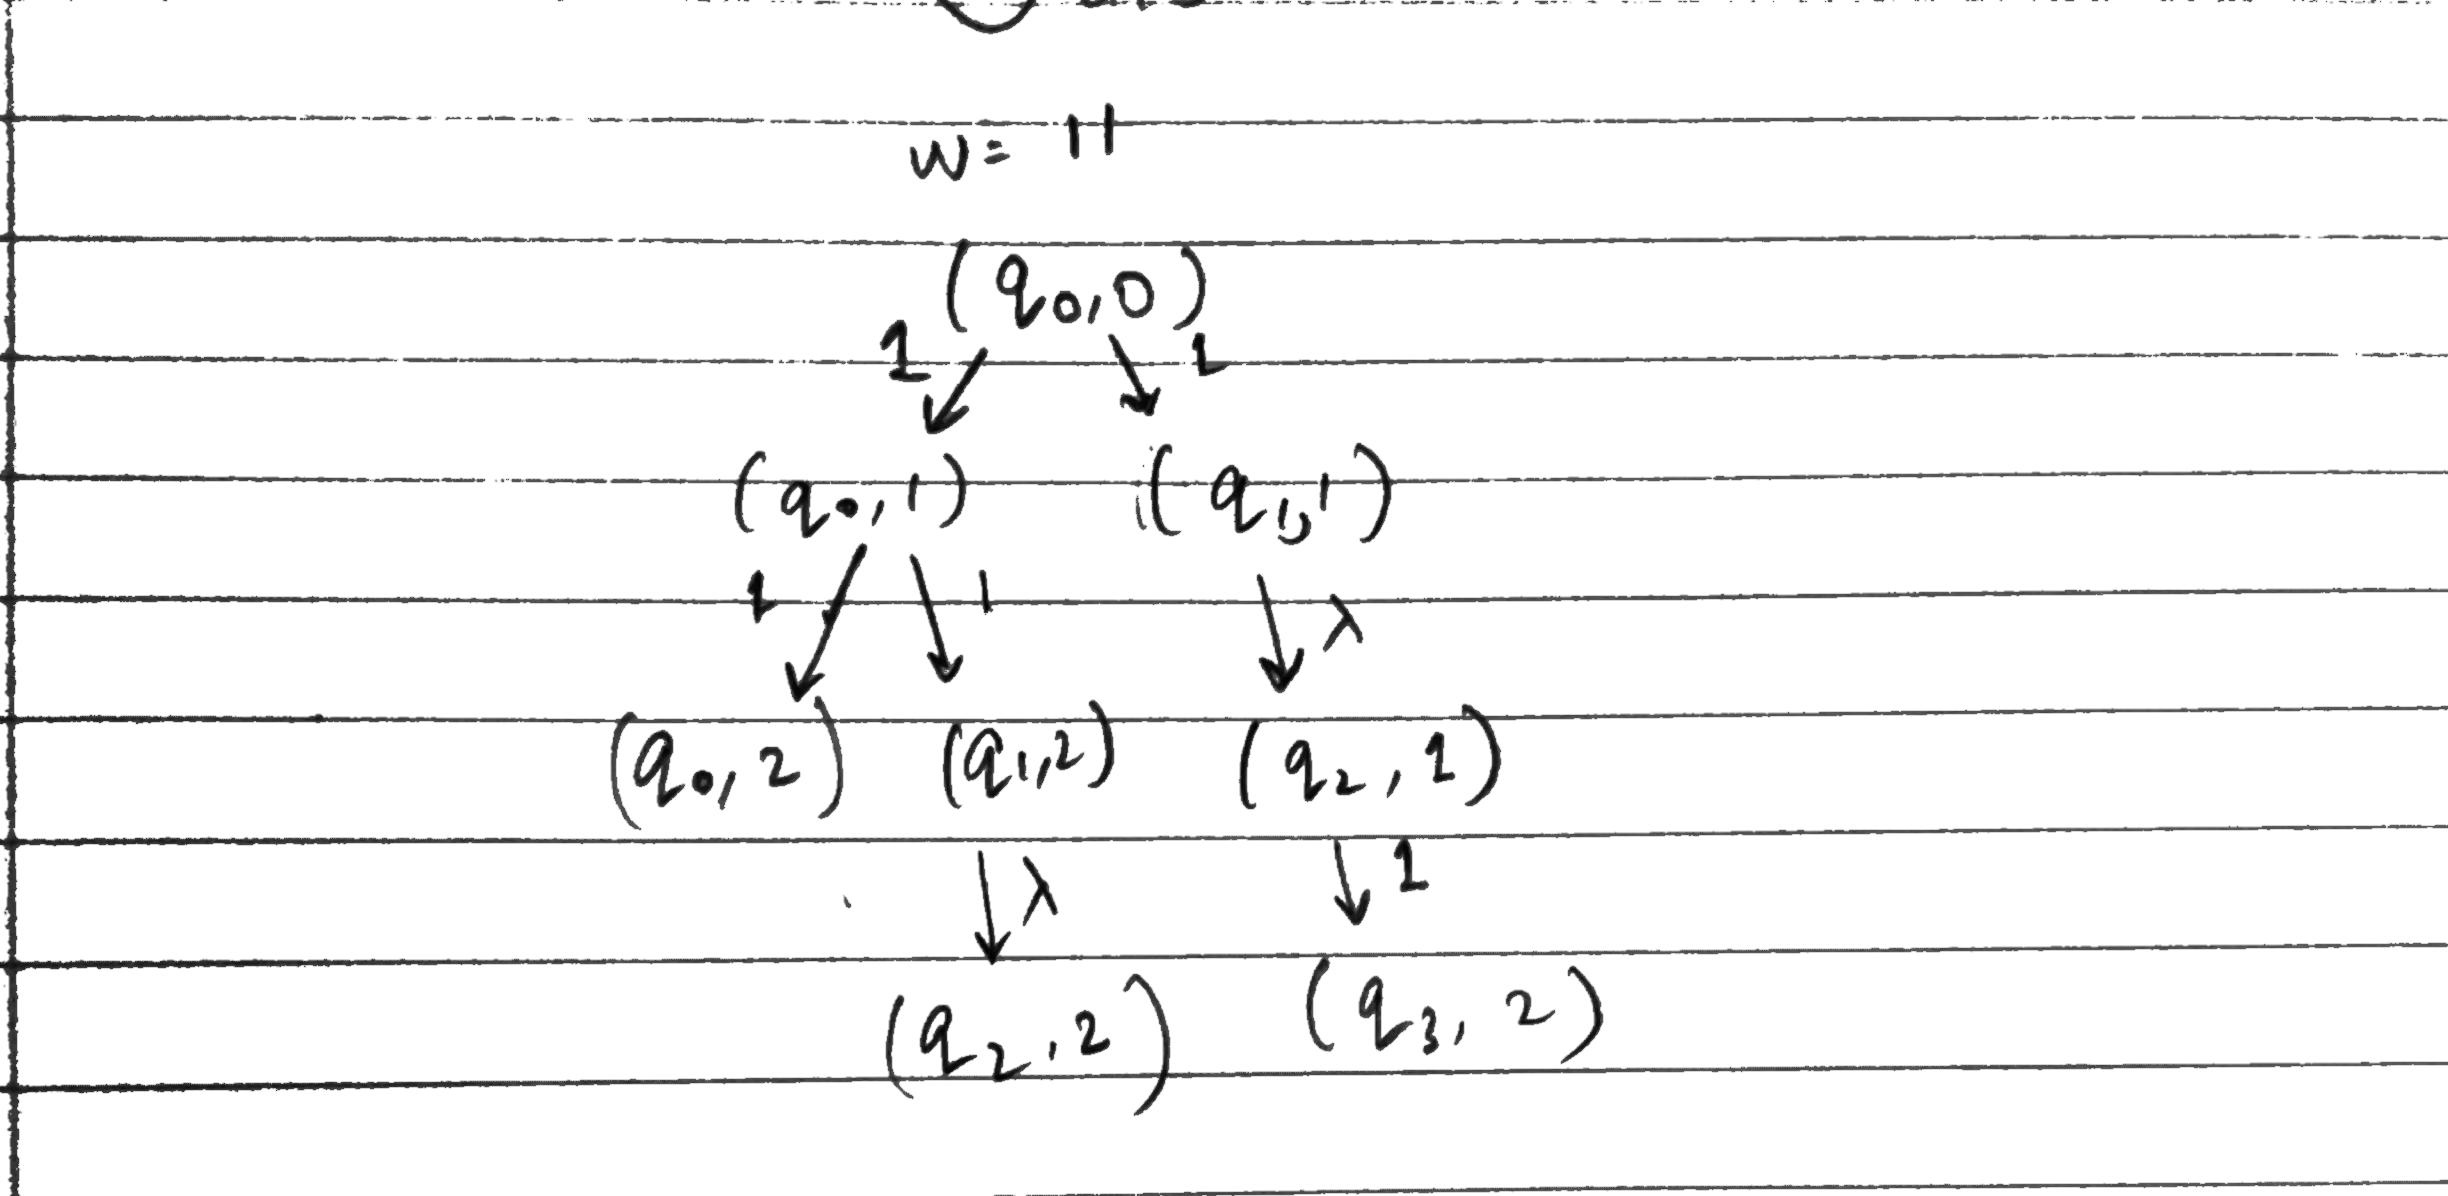 w = 11
(q0, 0)
1 1
(q0, 1) (q1, 1)
1 1 λ
(q0, 2) (q1, 2) (q2, 1)
λ 1
(q2, 2) (q3, 2)